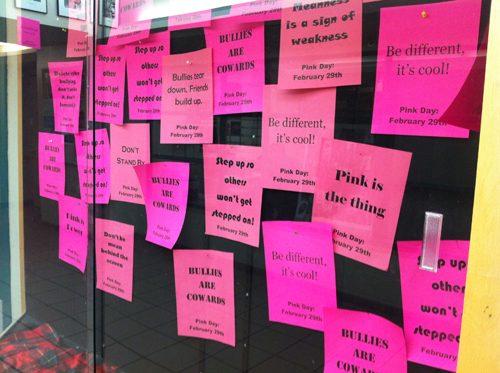 Meanness
is a sign of
weakness
Pink Day:
February 29th
Be different,
it's cool!
Pink Day:
February 29th
BULLIES
ARE
COWARDS
Pink Day:
February 29th
Step up so
others
won't get
stepped on!
Step up so
others
won't get
stepped on!
Bullies tear
down, Friends
build up.
Pink Day:
February 29th
Be different,
it's cool!
Pink Day:
February 29th
DON'T
STAND BY
BULLIES
ARE
COWARDS
Step up so
others
won't get
stepped on!
BULLIES
ARE
COWARDS
Step up so
others
won't get
stepped on!
Pink Day:
February 29th
Pink is
the thing
Pink Day:
February 29th
Don't be
mean
behind the
screen
BULLIES
ARE
COWARDS
Pink Day:
February 29th
Be different,
it's cool!
Pink Day:
February 29th
Step up
other
won't
stepped
Pink Day:
February 29th
BULLIES
ARE